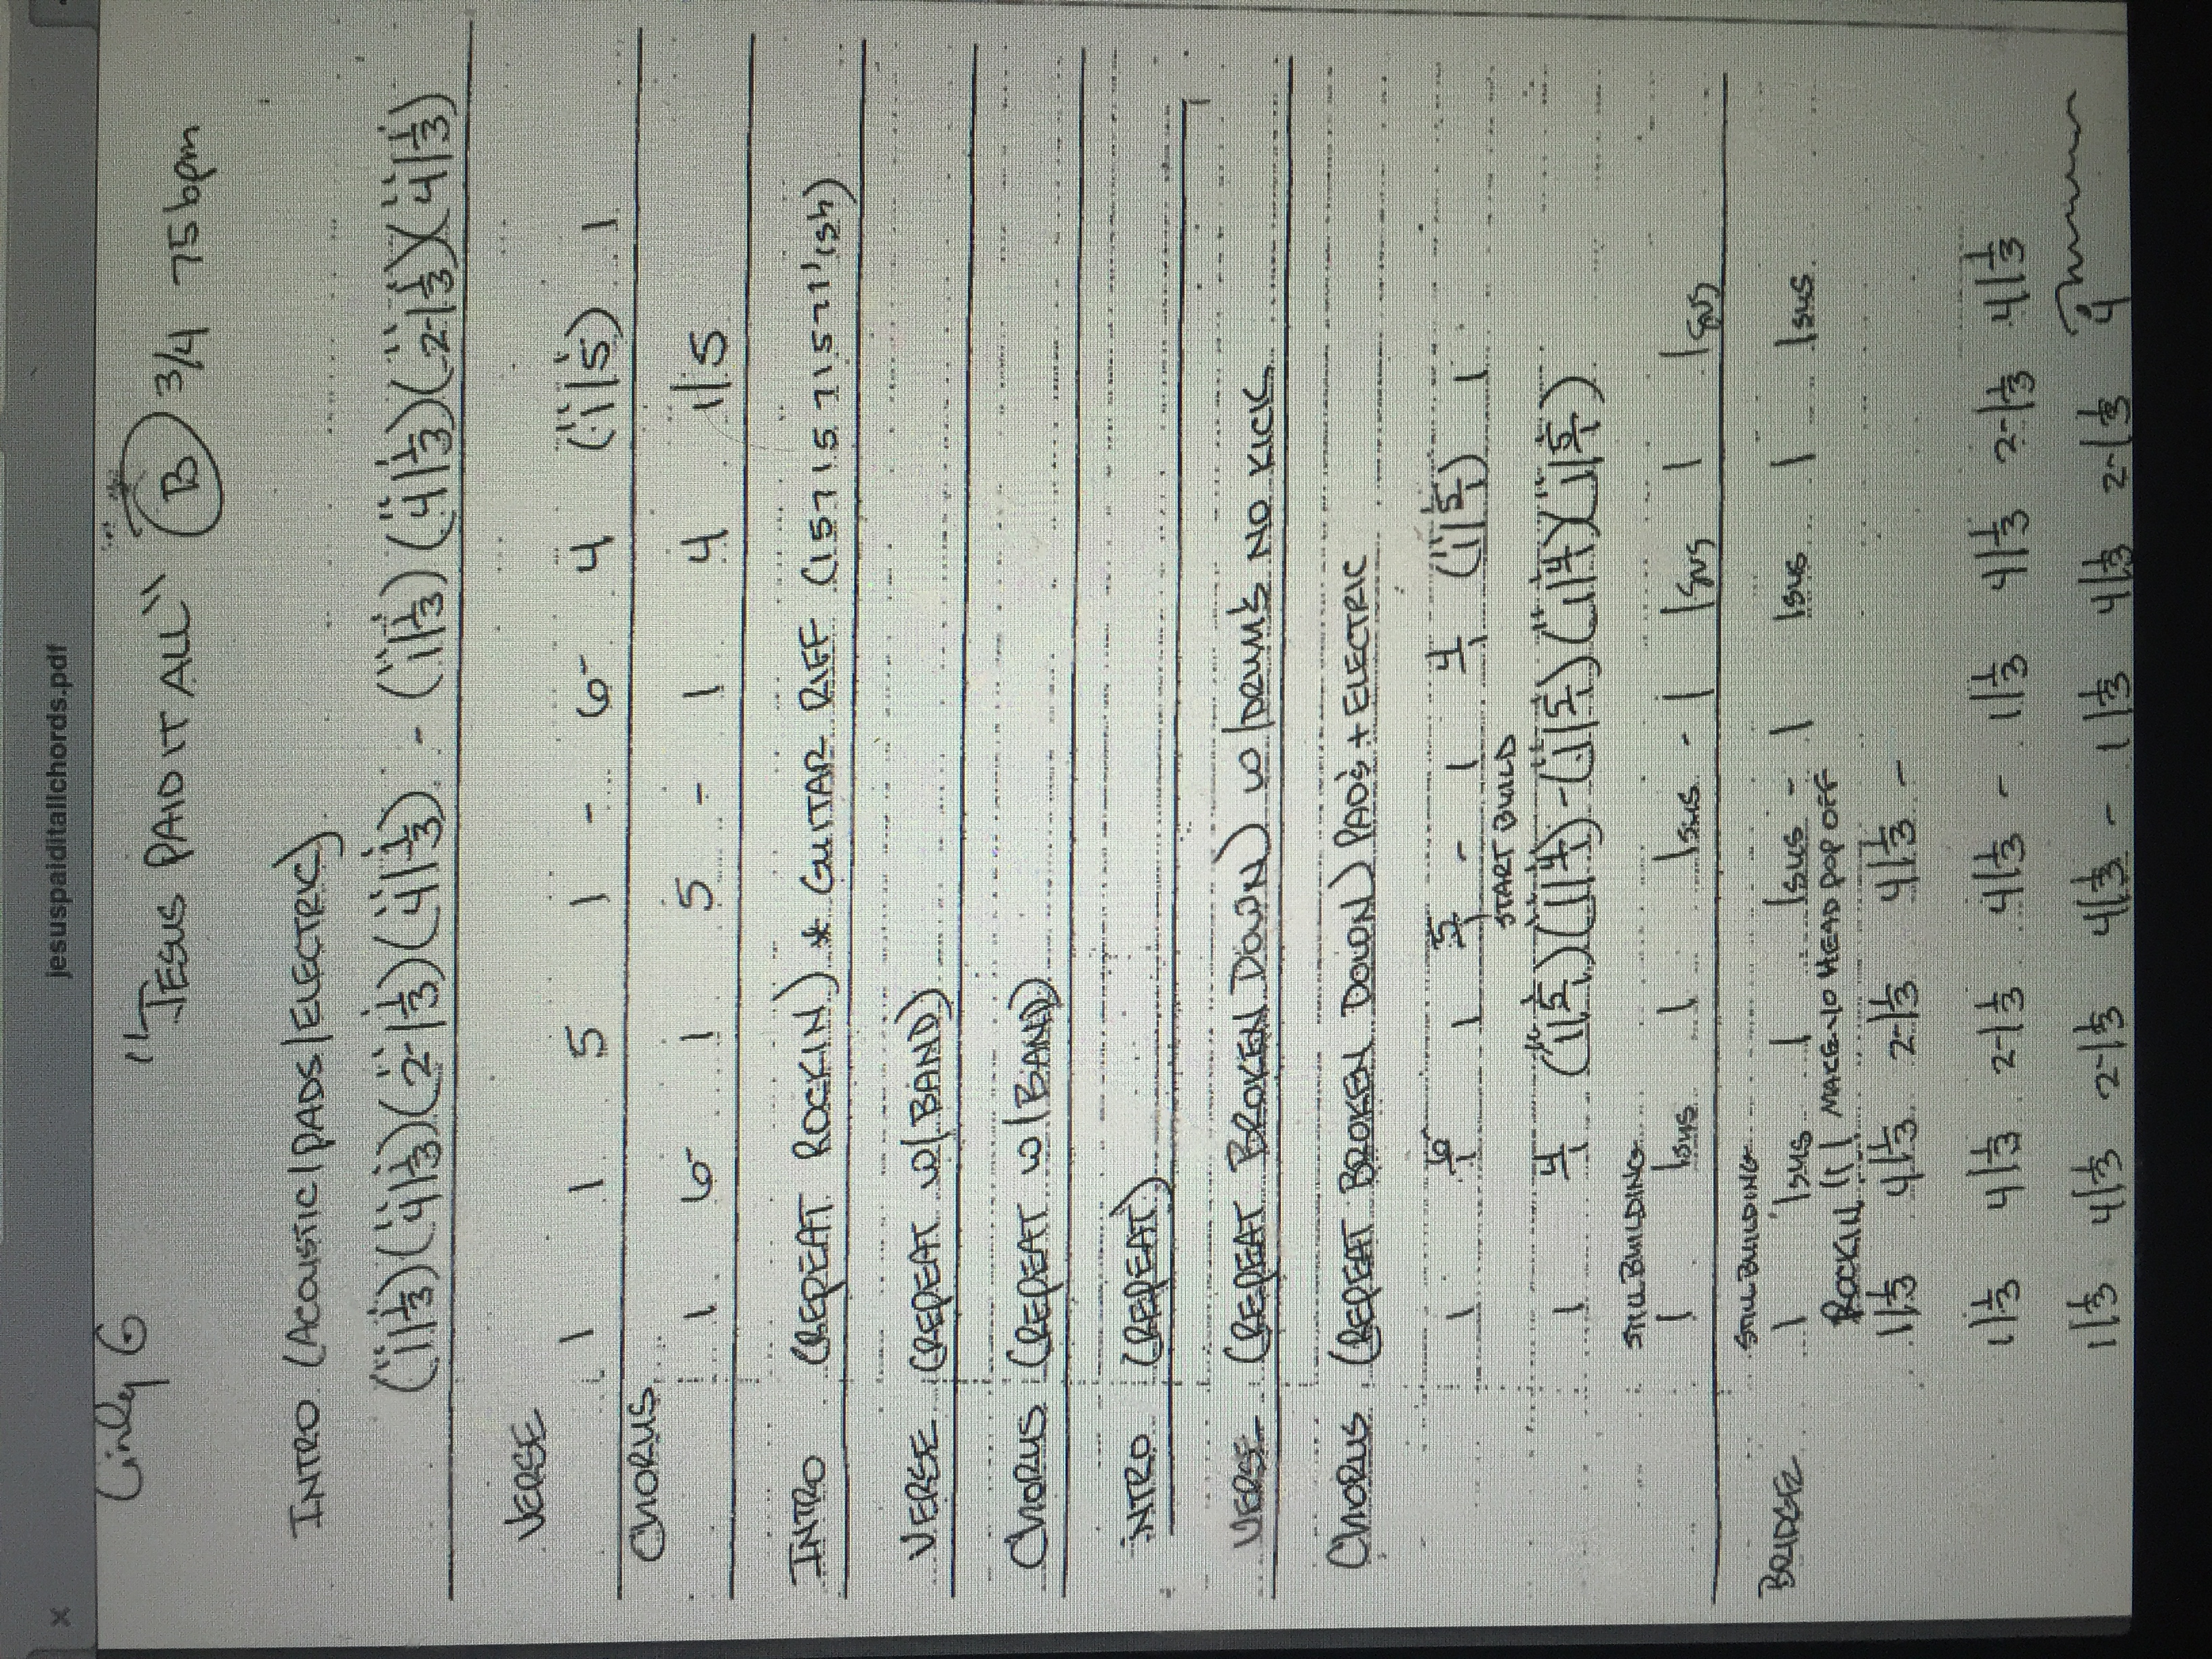 jesuspaiditallchords.pdf
"JESUS PAID IT ALL" B 3/4 75 bpm
INTRO (ACOUSTIC/PADS/ELECTRIC)
(1|1/3)(4|1/3)(2-|1/3)(4|1/3) - (1|1/3)(4|1/3)(2-|1/3)(4|1/3)
VERSE
1 1 5 1 - 6- 4 (1|5) 1
CHORUS
1 6- 1 5 - 1 4 1|5
INTRO (REPEAT ROCKIN) * GUITAR RIFF (1571571571'ish)
VERSE (REPEAT w/BAND)
CHORUS (REPEAT w/BAND)
INTRO (REPEAT)
VERSE (REPEAT BROKEN DOWN) w/DRUMS NO KICK
CHORUS (REPEAT BROKEN DOWN) PADS + ELECTRIC
1 6-/1 1 5/1 - 1 4/1 (1|5/1) 1
START BUILD
1 4/1 (1|5/1)(1|4/1) - (1|5/1)(1|4/1)(1|5/1)
STILL BUILDING
1 1sus 1 1sus - 1 1sus 1 1sus
STILL BUILDING
BRIDGE 1 1sus 1 1sus - 1 1sus 1 1sus
ROCKIN!!! MAKE YO HEAD POP OFF
1|1/3 4|1/3 2-|1/3 4|1/3 -
1|1/3 4|1/3 2-|1/3 4|1/3 - 1|1/3 4|1/3 2-|1/3 4|1/3
1|1/3 4|1/3 2-|1/3 4|1/3 - 1|1/3 4|1/3 2-|1/3 4